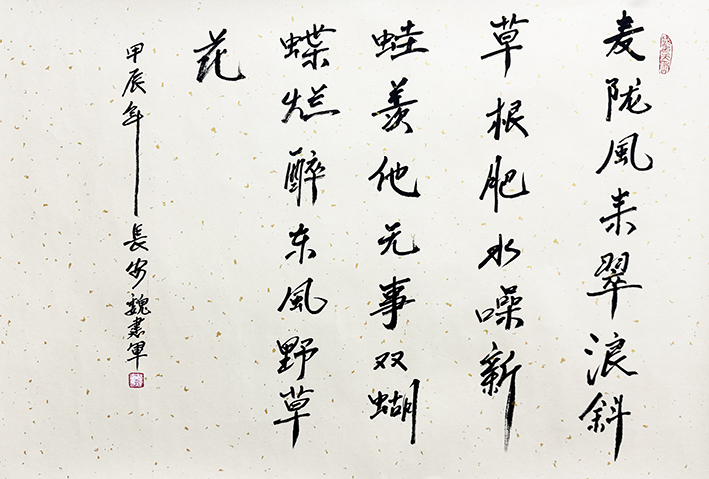 麦陇風来翠浪斜
草根肥水噪新
蛙羡他无事双蝴
蝶烂醉东風野草
花
甲辰年
長安魏書軍